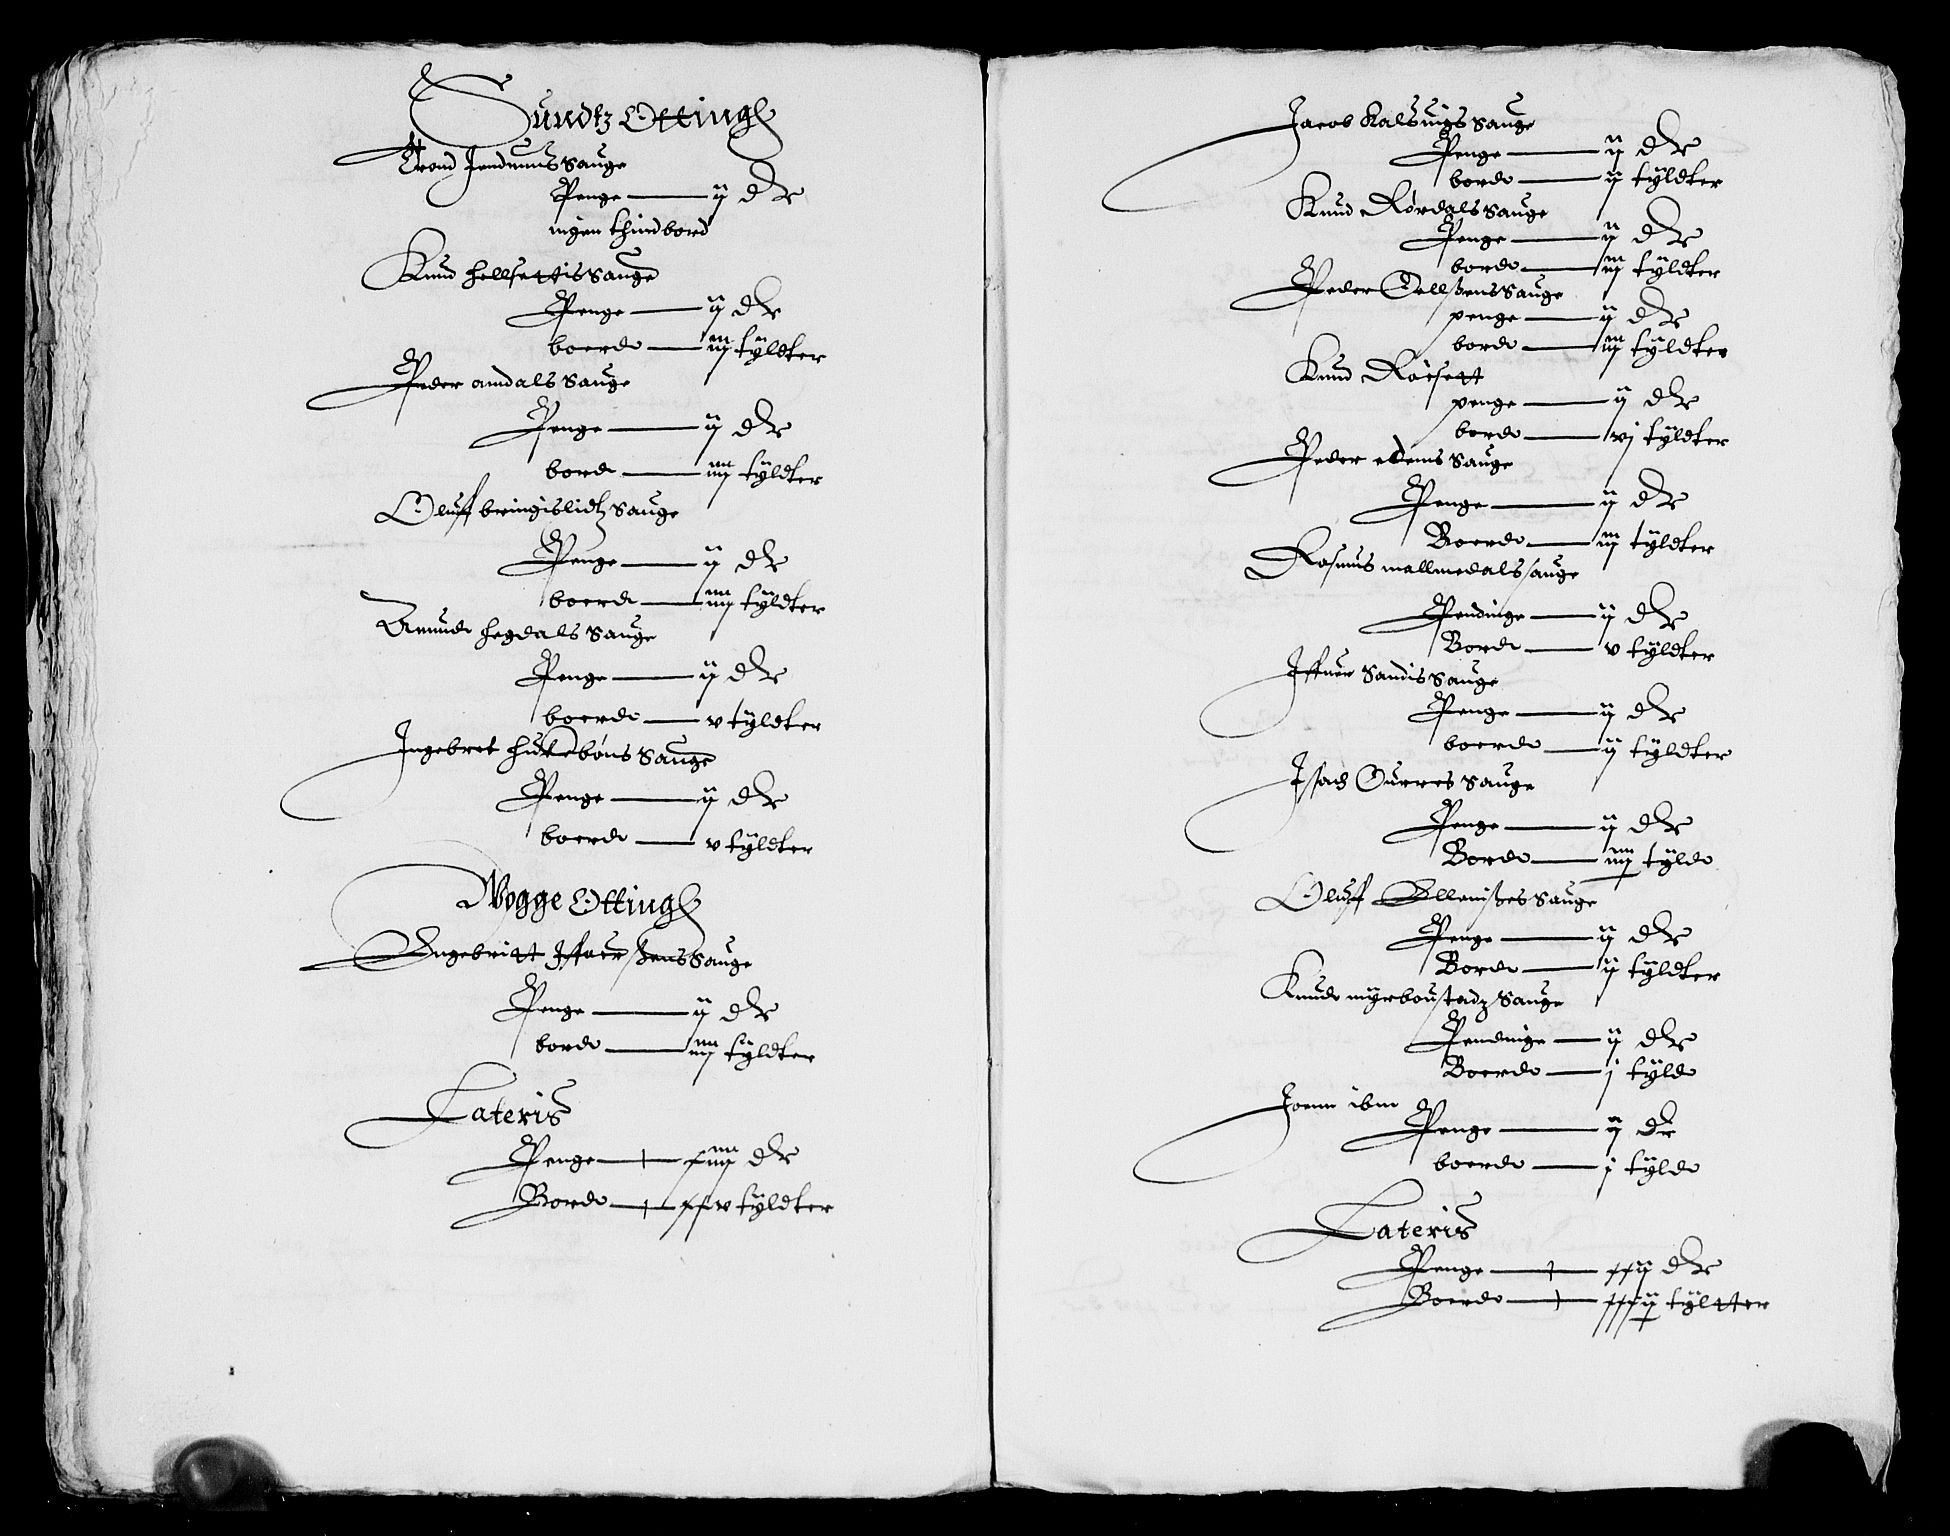 Sundtz Otting
Trond Jendemns Sauge
Penge — ij dr
ingen thind bord
Knud hellsettis Sauge
Penge — ij dr
boerde — iij tÿldter
Peder amdals Sauge
Penge — ij dr
bord — iiij tÿldter
Oluff bringislidtz Sauge
Penge — ij dr
boerde — iiij tÿldter
Amunde hegdals Sauge
Penge — ij dr
boerde — v tÿldter
Ingebret hustebøns Sauge
Penge — ij dr
boerde — v tÿldter
Wogge Otting
Engebritt Iffuerßens Sauge
Penge — ij dr
borde — iiij tÿldter
Lateris
Penge — xiiij dr
Borde — xxv tÿldter
Jacob Kalsuigs Sauge
Penge — ij dr
borde — ij tÿldter
Knud Rørdals Sauge
Penge — ij dr
borde — iij tÿldter
Peder Oellßens Sauge
penge — ij dr
borde — iij tÿldter
Knud Røisett
penge — ij dr
borde — vj tÿldter
Peder edems Sauge
Penge — ij dr
Boerde — iij tÿldter
Rasmus mallmedals sauge
Pendinge — ij dr
Borde — v tÿldter
Iffuer Sandis Sauge
Penge — ij dr
boerde — ij tÿldter
Isach Ourres Sauge
Penge — ij dr
Borde — iiij tÿlde
Oluff Ellenißes Sauge
Penge — ij dr
Borde — ij tÿldter
Knude mÿrboustadz Sauge
Pendinge — ij dr
Boerde — j tÿlde
Joenn ibm
Penge — ij dr
boerde — j tÿlde
Lateris
Penge — xxij dr
Boerde — xxxij tÿltter